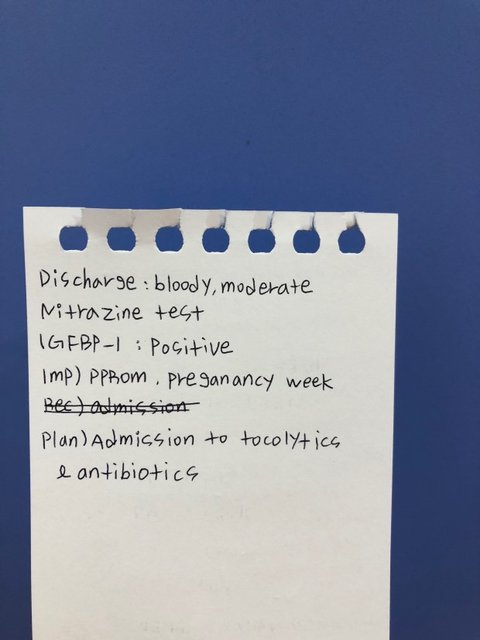 Discharge : bloody, moderate
Nitrazine test
IGFBP-1 : Positive
Imp) PPROM, preganancy week
Rec) admission
Plan) Admission to tocolytics
e antibiotics